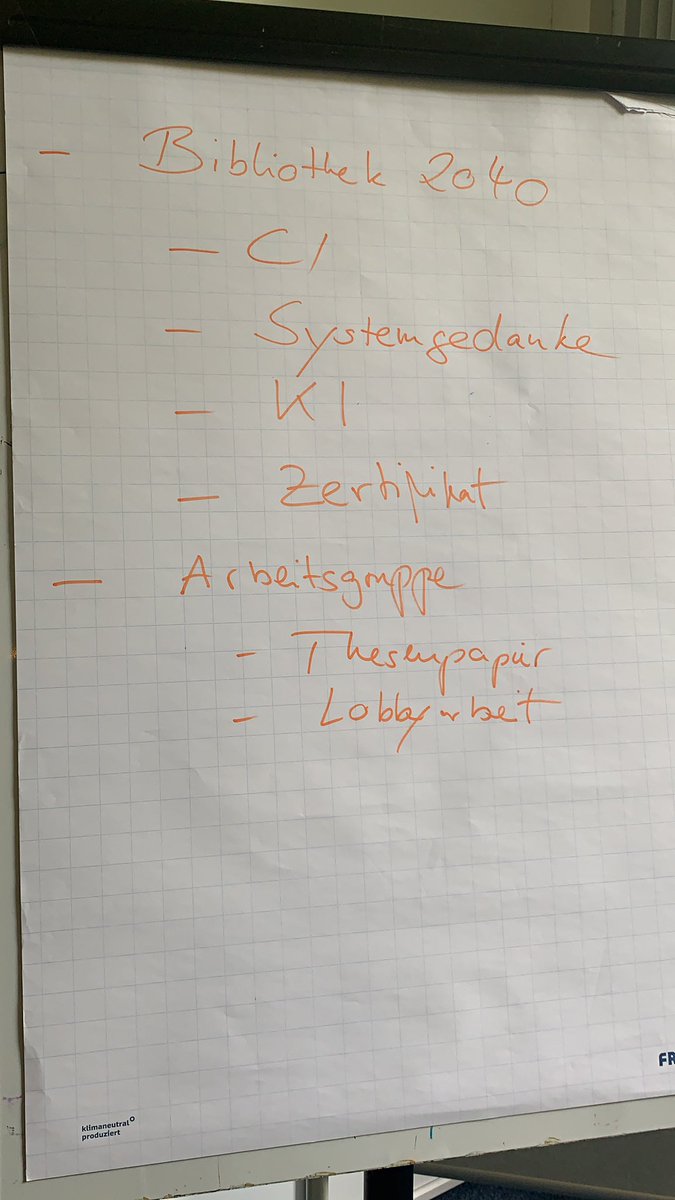 - Bibliothek 2040
- CI
- Systemgedanke
- KI
- Zertifikat
- Arbeitsgruppe
- Thesenpapier
- Lobbyarbeit
FR
klimaneutral°
produziert